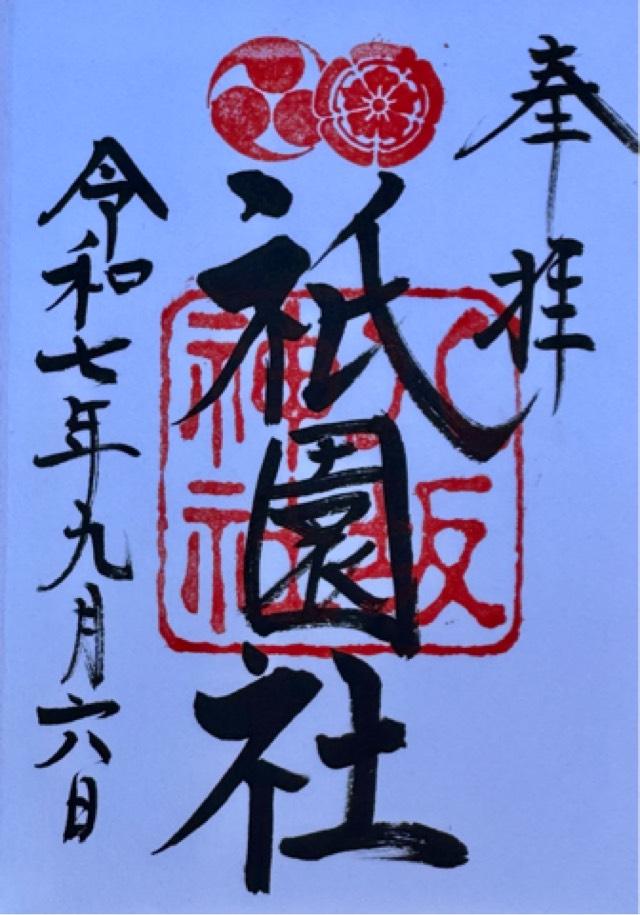 奉拝
祇園社
八坂神社
令和七年九月六日